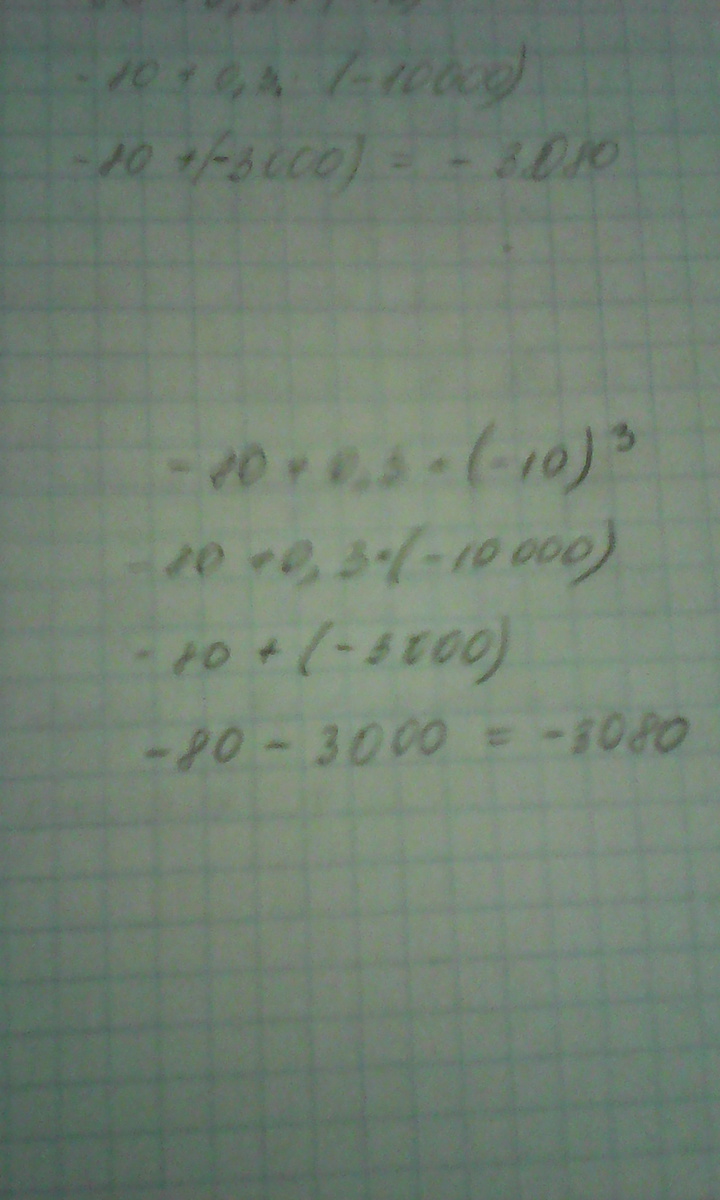 -80 + 0,3 · (-10000)
-80 +(-3000) = - 3080
-80 + 0,3 · (-10)³
-80 +0,3·(-10 000)
-80 + (-3000)
-80 - 3000 = -3080